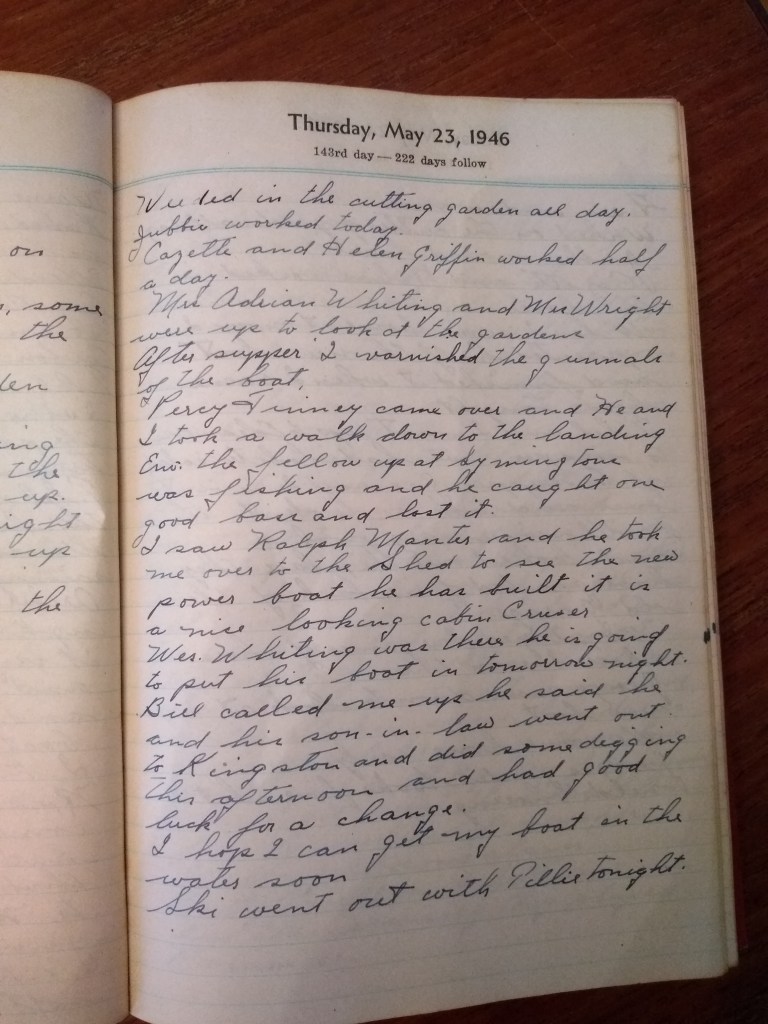 on
, some
the
ing
the
up.
ight
up
the
Thursday, May 23, 1946
143rd day — 222 days follow
Weeded in the cutting garden all day.
worked today.
and Helen Griffin worked half
a day.
Mrs Adrian Whiting and Mrs Wright
were up to look at the gardens
After supper I varnished the gunnals
of the boat.
Percy Tinney came over and He and
I took a walk down to the landing
the fellow up at Symingtons
was fishing and he caught one
good bass and lost it.
I saw Ralph Manter and he took
me over to the Shed to see the new
power boat he has built it is
a nice looking cabin Cruser
Wes. Whiting was there he is going
to put his boat in tomorrow night.
Bill called me up he said he
and his son-in-law went out
to Kingston and did some digging
this afternoon and had good
luck for a change.
I hop I can get my boat in the
water soon
Ski went out with Tillie tonight.